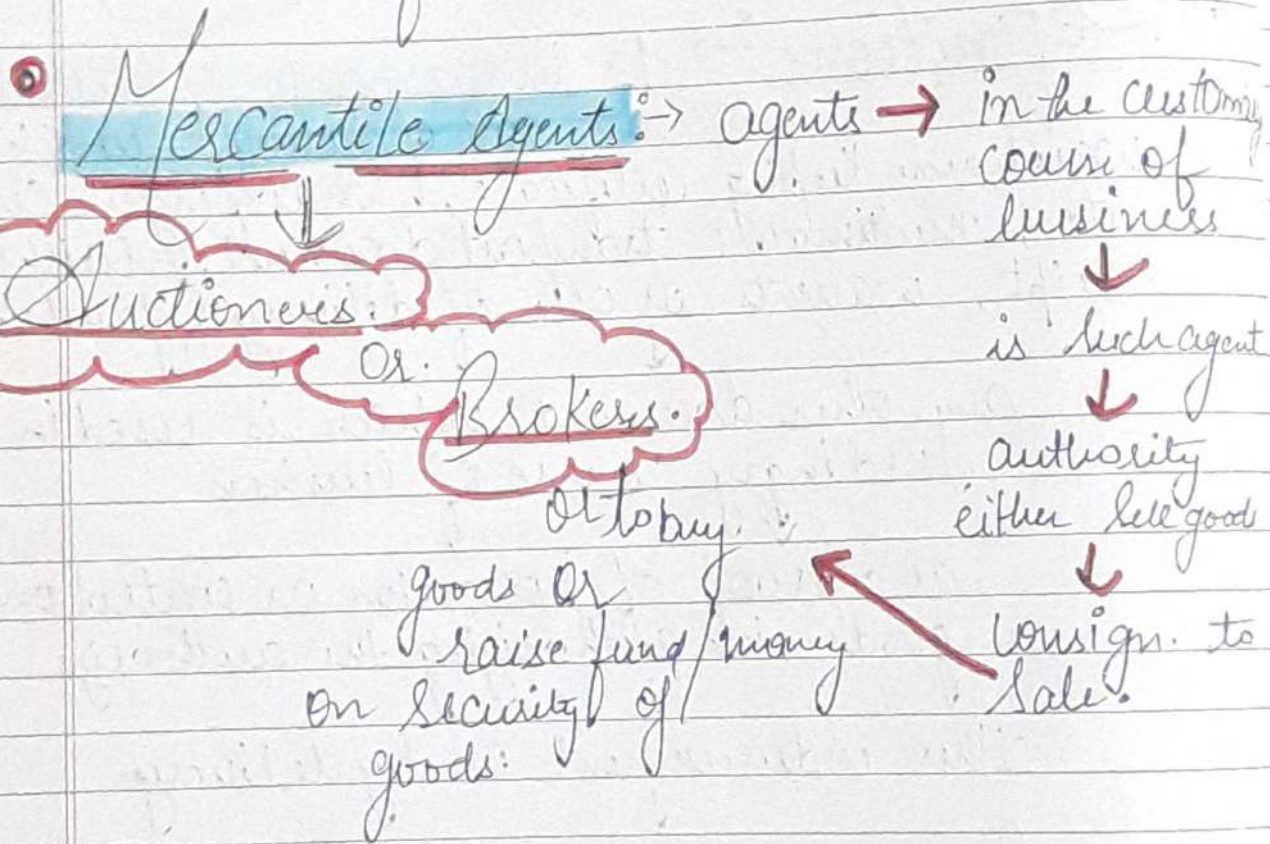 Mercantile Agents :→ agents → in the customry
course of
business
↓
is such agent
↓
authority
either sell goods
↓
consign. to
sale.
↓
Auctioneers.
or.
Brokers.
or to buy
goods or
raise fund/money
on security of
goods: